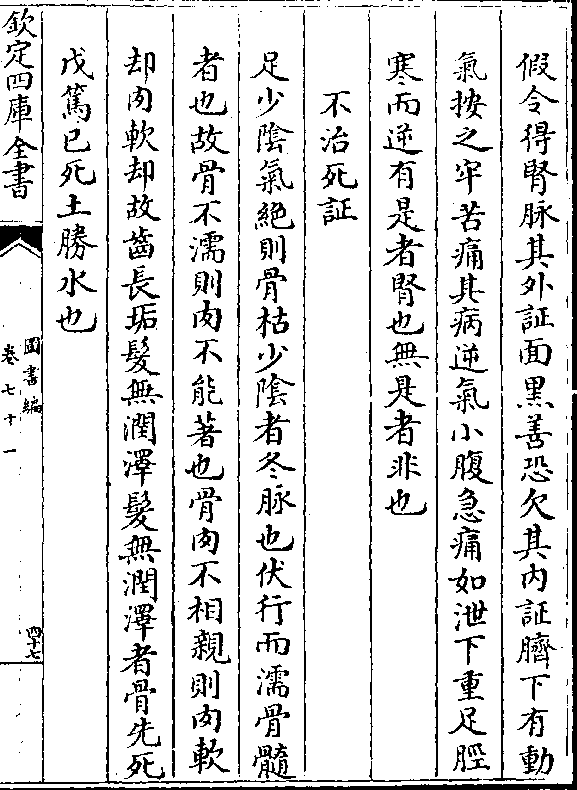 假令得腎脉其外証面黒善恐欠其内証臍下有動
氣按之牢苦痛其病逆氣小腹急痛如泄下重足脛
寒而逆有是者腎也無是者非也
不治死証
足少陰氣絶則骨枯少陰者冬脉也伏行而濡骨髓
者也故骨不濡則肉不能著也骨肉不相親則肉軟
却肉軟却故齒長垢髮無潤澤髮無潤澤者骨先死
戊篤已死土勝水也
欽定四庫全書
圖書編
卷七十一
四十七